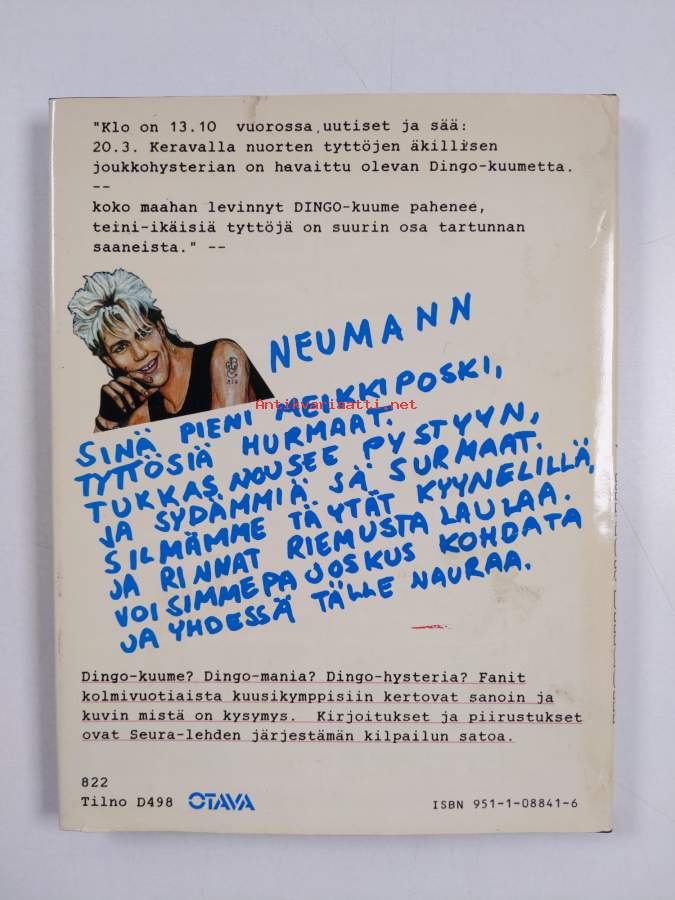 "Klo on 13.10 vuorossa uutiset ja sää:
20.3. Keravalla nuorten tyttöjen äkillisen
joukkohysterian on havaittu olevan Dingo-kuumetta.
--
koko maahan levinnyt DINGO-kuume pahenee,
teini-ikäisiä tyttöjä on suurin osa tartunnan
saaneista." --
NEUMANN
SINÄ PIENI MEIKKIPOSKI,
TYTTÖSIÄ HURMAAT.
TUKKAS NOUSEE PYSTYYN,
JA SYDÄMMIÄ SÄ SURMAAT.
SILMÄMME TÄYTÄT KYYNELILLÄ,
JA RINNAT RIEMUSTA LAULAA.
VOISIMMEPA JOSKUS KOHDATA
JA YHDESSÄ TÄLLE NAURAA.
Antikvariaatti.net
Dingo-kuume? Dingo-mania? Dingo-hysteria? Fanit
kolmivuotiaista kuusikymppisiin kertovat sanoin ja
kuvin mistä on kysymys. Kirjoitukset ja piirustukset
ovat Seura-lehden järjestämän kilpailun satoa.
822
Tilno D498 OTAVA
ISBN 951-1-08841-6